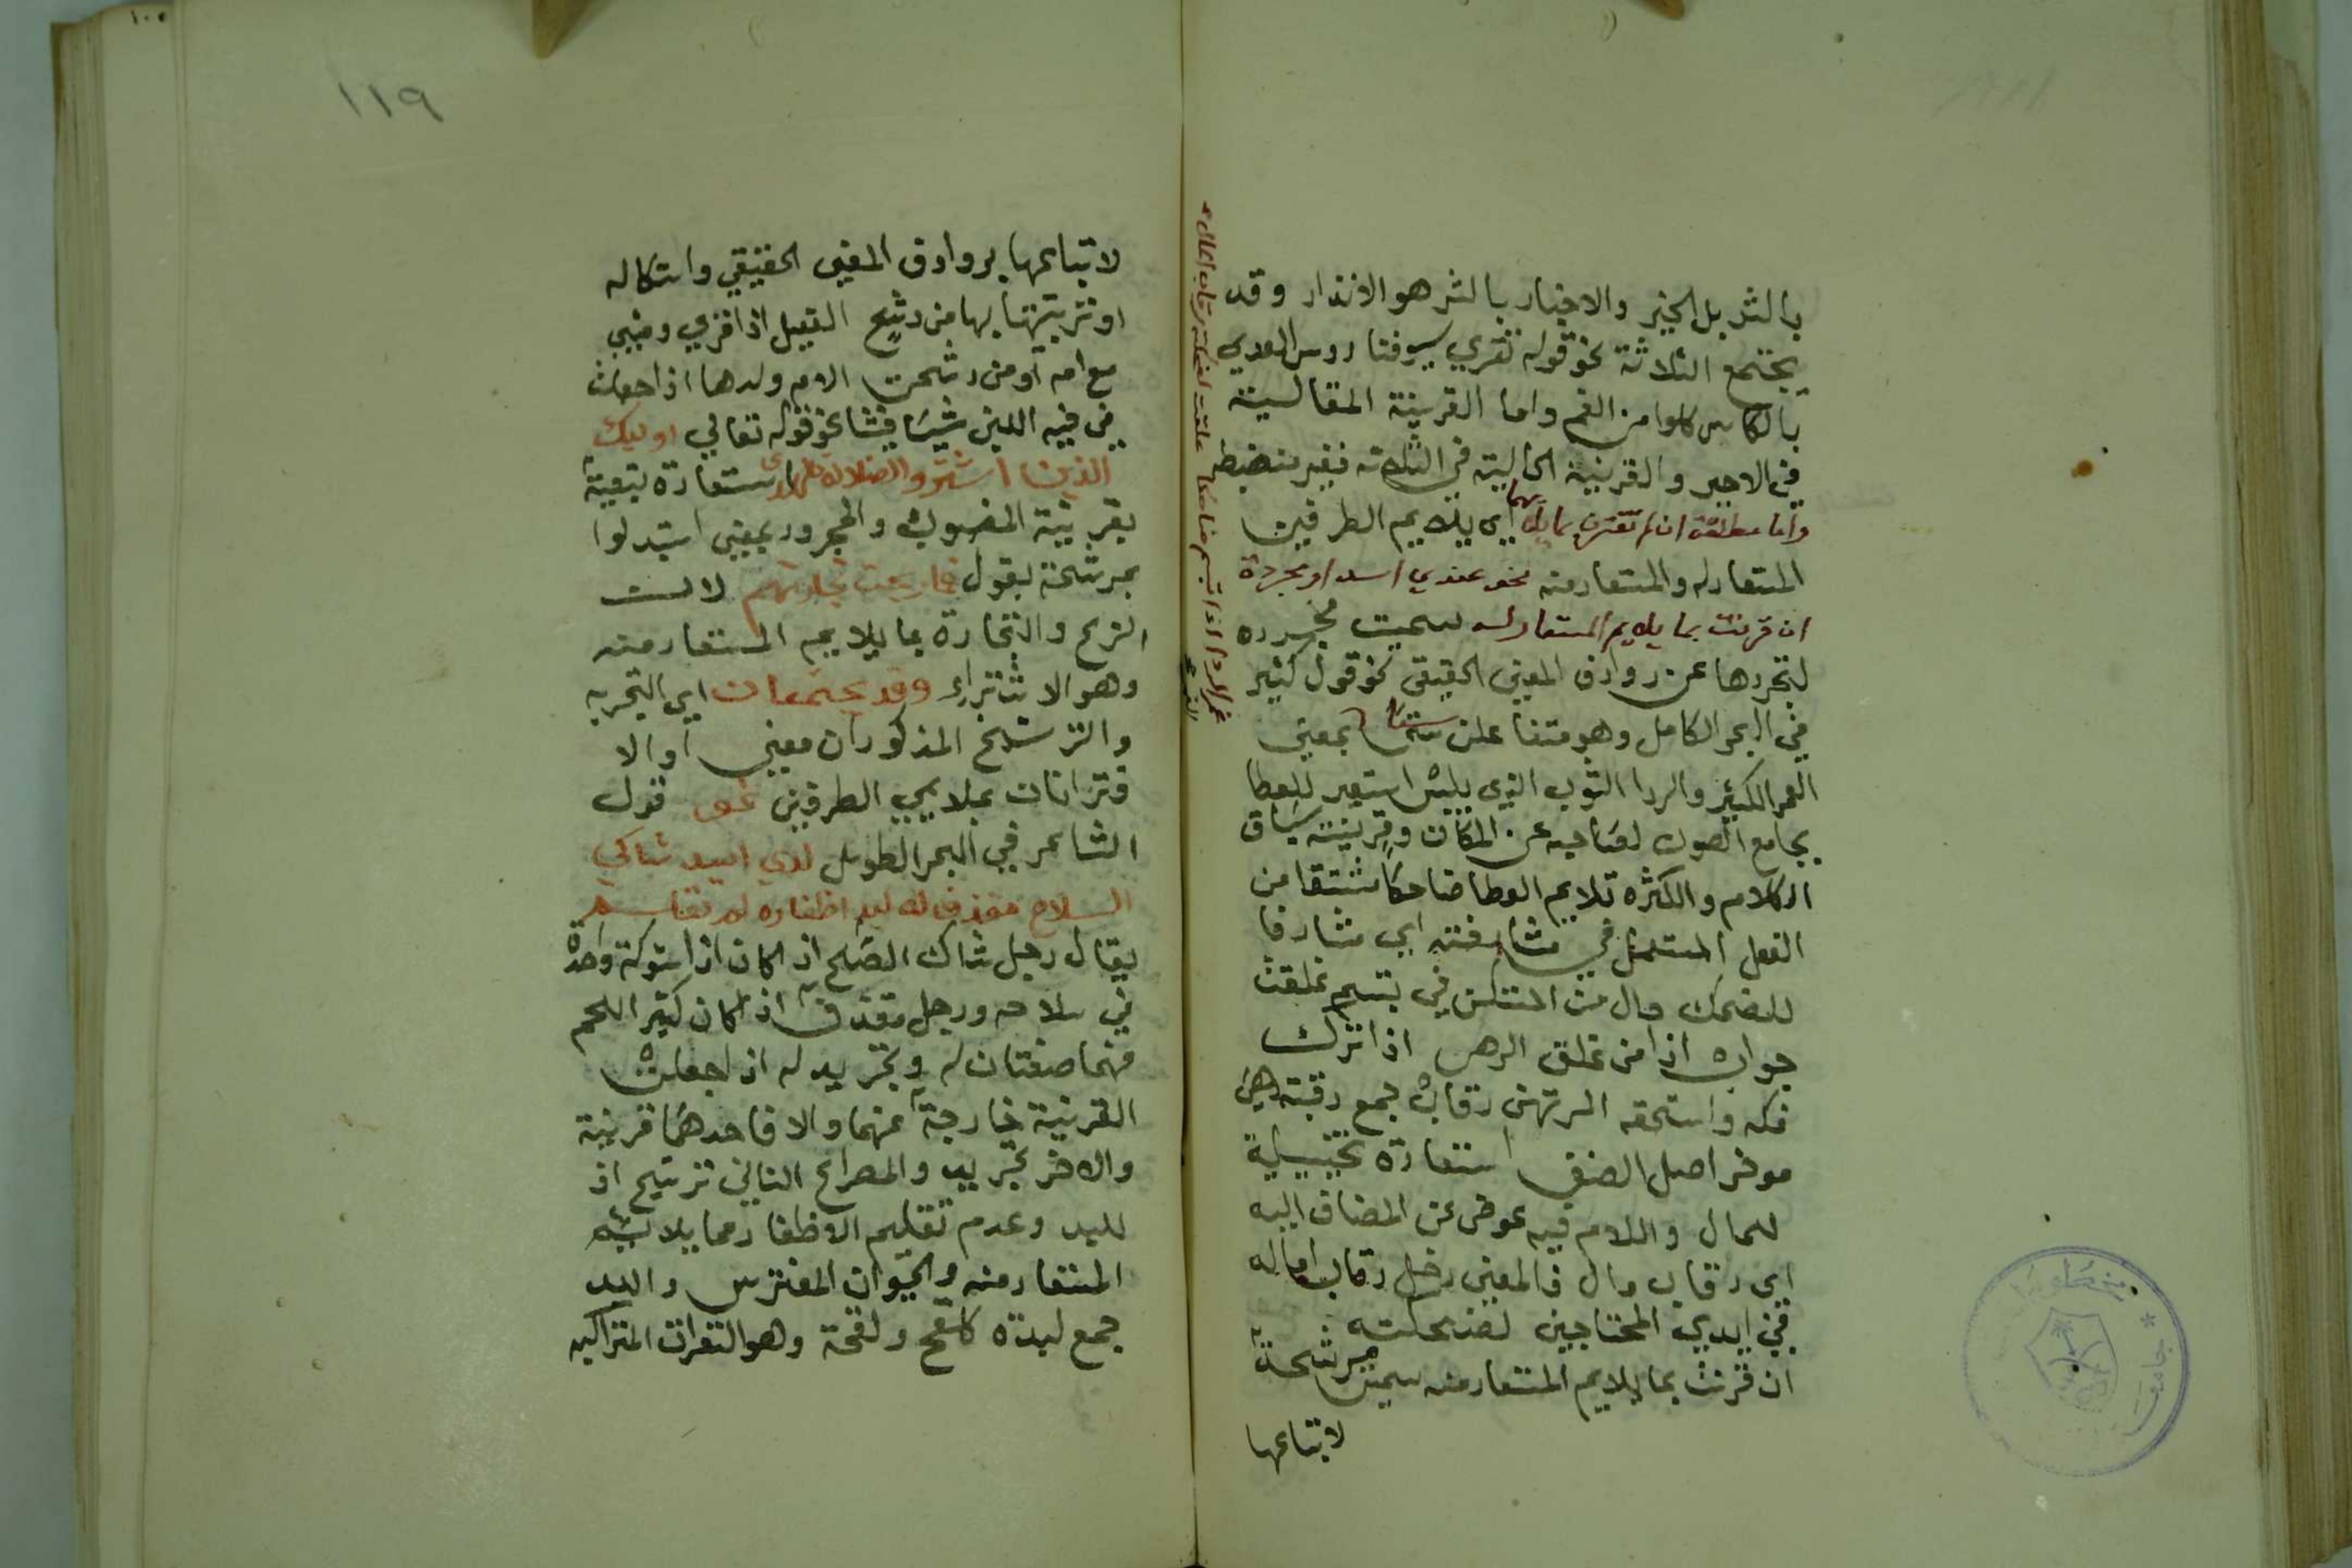 بالثر بل الخير والاخبار بالشر هو الانذار وقد
يجتمع الثلاثة نحو قوله تقري سيوفنا روس العدي
بالكاس كلوا من الغم واما القرينة المقالية
في الاخير والقرينة الحالية في الثلاثة فغير منضبطه
واما مطلقة ان لم تقترن بما يلايمهما اي يلايم الطرفين
المستعار له والمستعار منه نحو عندي اسد او مجردة
ان قرنت بما يلايم المستعار له سميت مجرده
لتجردها عن روادف المعني الحقيقي نحو قول كثير
في البحر الكامل وهو متفاعلن ستا بمعني
الغمر الكثير والردا الثوب الذي يلبس استعير للعطا
بجامع الصون لصاحبه عن المكان وقرينته سياق
الكلام والكثره تلايم العطا ضاحكا مشتقا من
الفعل المستعمل في مشارفته اي مشارفا
للضحك حال من المستكن في تبسم غلقت
جواب اذا من غلق الرهن اذا ترك
فكه واستحقه المرتهن رقاب جمع رقبة هي
موخر اصل العنق استعارة تخييلية
للمال واللام فيه عوض عن المضاف اليه
اي رقاب مال فالمعني رقاب امواله
في ايدي المحتاجين لضحكته
ان قرنت بما يلايم المستعار منه سميت مرشحة
لاتباعها
غمر الردا اذا تبسم ضاحكا غلقت لضحكته رقاب المال
١١٩
لاتباعها بروادف المعني الحقيقي واستكاله
او تربيتها بها من رشح الفصيل اذا قوي ومشي
مع امه او من رشحت الام ولدها اذا جعلت
في فيه اللبن شيئا فشيئا نحو قوله تعالي اوليك
الذين اشتروا الضلالة بالهدى استعارة تبعية
بقرينة المنصوب والمجرور بمعني استبدلوا
مرشحة بقول فما ربحت تجارتهم لان
الربح والتجارة مما يلايم المستعار منه
وهو الاشتراء وقد يجتمعان اي التجريد
والترشيح المذكوران معني او الا
قترانان بملايمي الطرفين نحو قول
الشاعر في البحر الطويل لدي اسد شاكي
السلاح مقذف له لبد اظفاره لم تقلم
يقال رجل شاك السلاح اذا كان اذا شوكة واحدة
في سلاحه ورجل مقذف اذا كان كثير اللحم
فهما صفتان له وتجريد له اذا جعلت
القرينة خارجة عنهما والا فاحدهما قرينة
والاخر تجريد والمصراع الثاني ترشيح اذ
للبد وعدم تقليم الاظفار مما يلايم
المستعار منه والحيوان المفترس واللبد
جمع لبدة كلقح ولقحة وهو الشعرات المتراكبه